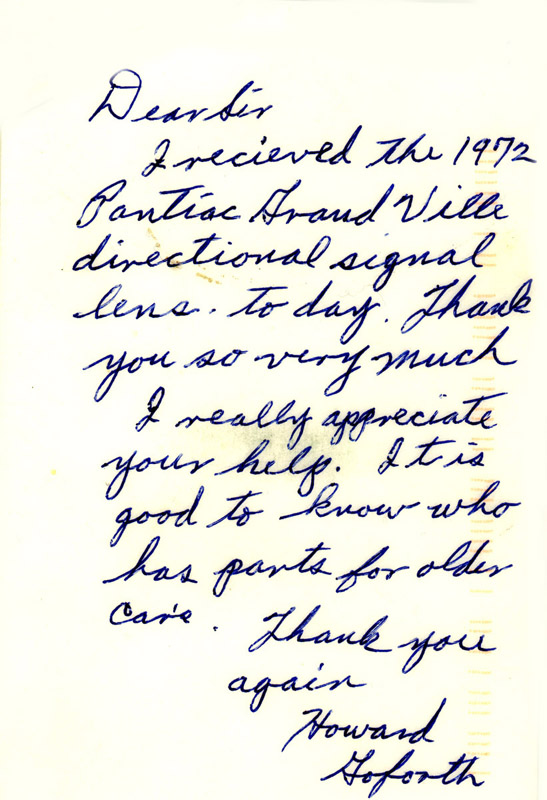 Dear Sir
I recieved the 1972
Pontiac Grand Ville
directional signal
lens. to day. Thank
you so very much
I really appreciate
your help. It is
good to know who
has parts for older
cars. Thank you
again
Howard
Goforth